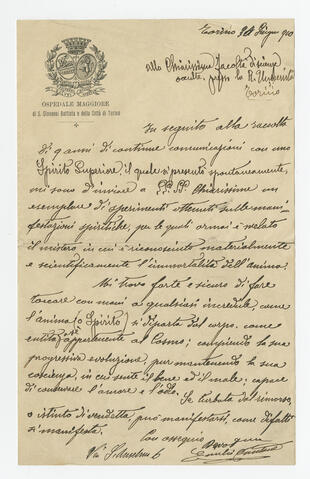 Torino 24 Giugno 910
OSPEDALE MAGGIORE
di S. Giovanni Battista e della Città di Torino
alla Chiarissima Facoltà Scienze
occulte, presso la R. Università
Torino
In seguito alla raccolta
di 9 anni di continue comunicazioni con uno
Spirito Superiore, il quale si presentò spontaneamente,
mi sono d'inviare a SS. Chiarissime un
esemplare di esperimenti ottenuti sulle mani-
festazioni spiritiche, per le quali ormai è svelato
il mistero in cui è riconosciuta materialmente
e scientificamente l'immortalità dell'anima.
Mi trovo forte e sicuro di fare
toccare con mani a qualsiasi incredulo, come
l'anima (o Spirito) si diparta dal corpo, come
entità appartenente al Cosmo; compiendo la sua
progressiva evoluzione, pur mantenendo la sua
coscienza, in cui sente il bene ed il male: capace
di conservare l'amore e l'odio. Se turbata dal rimorso,
o istinto di vendetta, può manifestarsi, come difatti
si manifesta.
Con ossequio
Via S. Anselmo 6